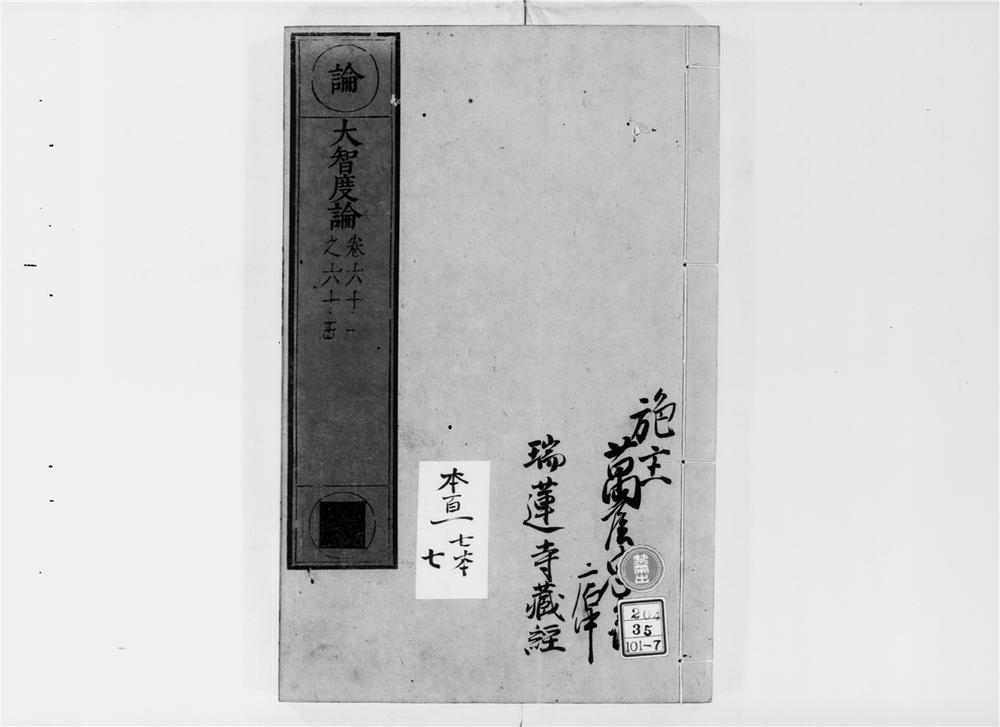 論
大智度論
卷六十一
之六十五
施主
萬屋
瑞蓮寺藏経
本百一
七本
七
禁帶出
204
35
101-7